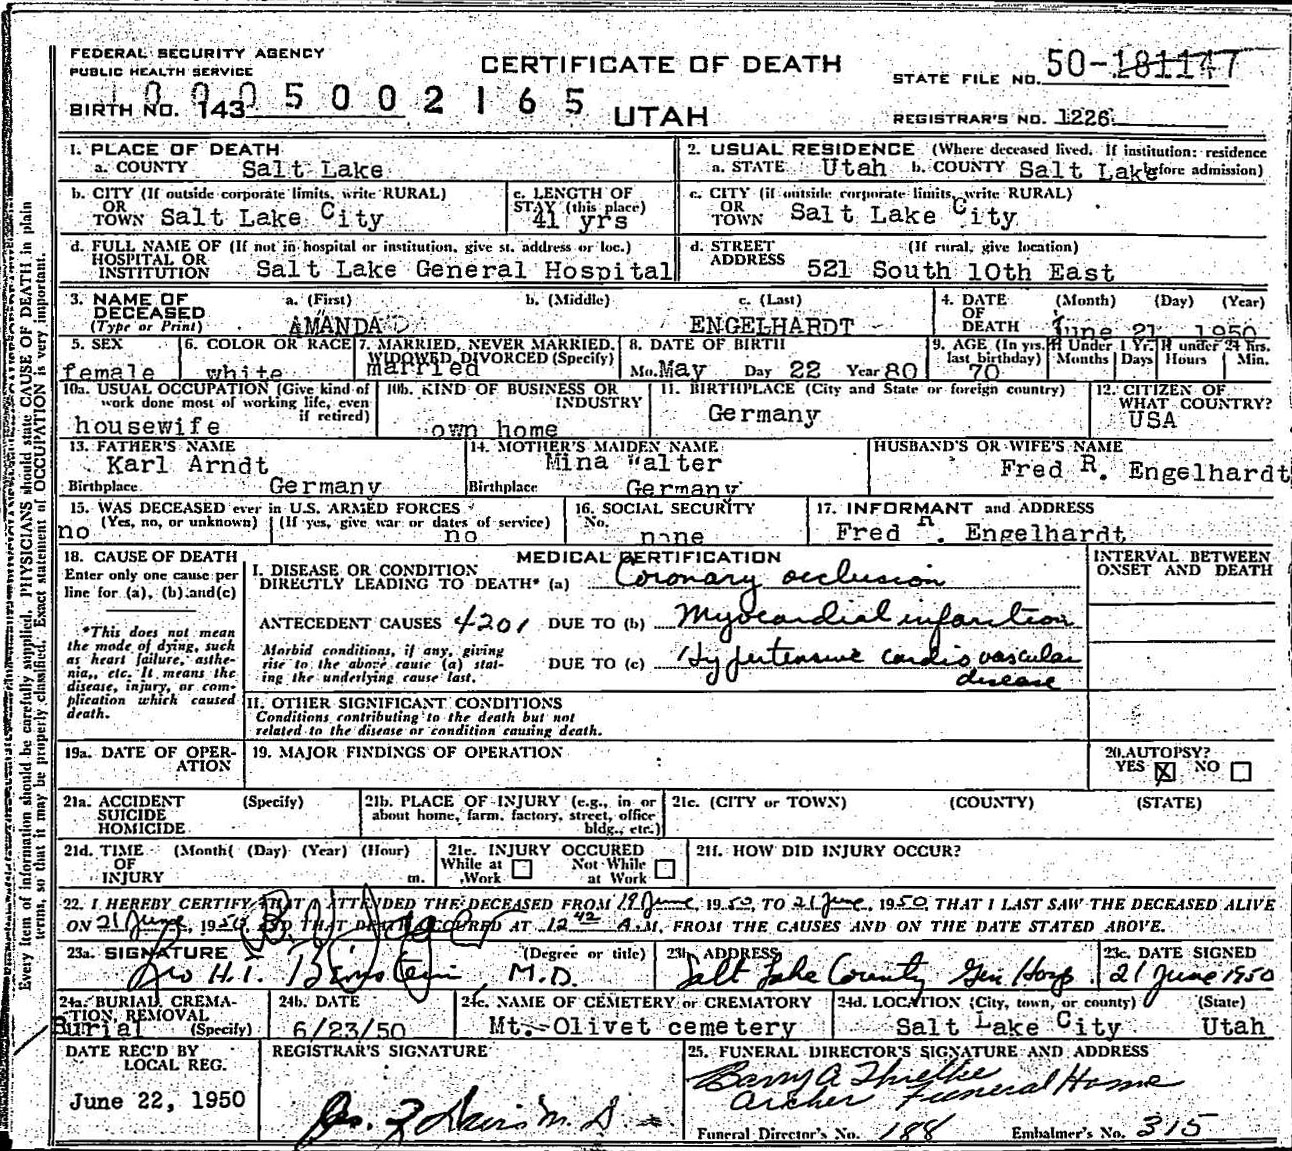 FEDERAL SECURITY AGENCY
PUBLIC HEALTH SERVICE
CERTIFICATE OF DEATH
STATE FILE NO. 50-181147
BIRTH NO. 143
5 0 0 2 1 6 5
UTAH
REGISTRAR'S NO. 1226
1. PLACE OF DEATH
a. COUNTY Salt Lake
2. USUAL RESIDENCE (Where deceased lived. If institution: residence before admission)
a. STATE Utah b. COUNTY Salt Lake
b. CITY (If outside corporate limits, write RURAL)
OR
TOWN Salt Lake City
c. LENGTH OF
STAY (this place)
41 yrs
c. CITY (if outside corporate limits, write RURAL)
OR
TOWN Salt Lake City
d. FULL NAME OF (If not in hospital or institution, give st. address or loc.)
HOSPITAL OR
INSTITUTION Salt Lake General Hospital
d. STREET (If rural, give location)
ADDRESS 521 South 10th East
3. NAME OF
DECEASED
(Type or Print)
a. (First) b. (Middle) c. (Last)
AMANDA ENGELHARDT
4. DATE (Month) (Day) (Year)
OF
DEATH June 21 1950
5. SEX
female
6. COLOR OR RACE
white
7. MARRIED, NEVER MARRIED,
WIDOWED, DIVORCED (Specify)
married
8. DATE OF BIRTH
Mo. May Day 22 Year 80
9. AGE (In yrs. last birthday)
70
If Under 1 Yr. If under 24 hrs.
Months Days Hours Min.
10a. USUAL OCCUPATION (Give kind of
work done most of working life, even
if retired)
housewife
10b. KIND OF BUSINESS OR
INDUSTRY
own home
11. BIRTHPLACE (City and State or foreign country)
Germany
12. CITIZEN OF
WHAT COUNTRY?
USA
13. FATHER'S NAME
Karl Arndt
Birthplace Germany
14. MOTHER'S MAIDEN NAME
Mina Walter
Birthplace Germany
HUSBAND'S OR WIFE'S NAME
Fred R. Engelhardt
15. WAS DECEASED ever in U.S. ARMED FORCES
(Yes, no, or unknown) (If yes, give war or dates of service)
no no
16. SOCIAL SECURITY
No. none
17. INFORMANT and ADDRESS
Fred R. Engelhardt
18. CAUSE OF DEATH
Enter only one cause per
line for (a), (b) and (c)
*This does not mean
the mode of dying, such
as heart failure, asthe-
nia, etc. It means the
disease, injury, or com-
plication which caused
death.
MEDICAL CERTIFICATION
I. DISEASE OR CONDITION
DIRECTLY LEADING TO DEATH* (a) Coronary occlusion
ANTECEDENT CAUSES 4201 DUE TO (b) Myocardial infarction
Morbid conditions, if any, giving
rise to the above cause (a) stat-
ing the underlying cause last.
DUE TO (c) Hypertensive cardiovascular
disease
INTERVAL BETWEEN
ONSET AND DEATH
II. OTHER SIGNIFICANT CONDITIONS
Conditions contributing to the death but not
related to the disease or condition causing death.
19a. DATE OF OPER-
ATION
19. MAJOR FINDINGS OF OPERATION
20. AUTOPSY?
YES X NO
21a. ACCIDENT (Specify)
SUICIDE
HOMICIDE
21b. PLACE OF INJURY (e.g., in or
about home, farm, factory, street, office
bldg., etc.)
21c. (CITY or TOWN) (COUNTY) (STATE)
21d. TIME (Month) (Day) (Year) (Hour)
OF
INJURY m.
21e. INJURY OCCURED
While at Work Not While at Work
21f. HOW DID INJURY OCCUR?
22. I HEREBY CERTIFY THAT I ATTENDED THE DECEASED FROM 19 June, 1950, TO 21 June, 1950 THAT I LAST SAW THE DECEASED ALIVE
ON 21 June, 1950, AND THAT DEATH OCCURED AT 12 42 A.M, FROM THE CAUSES AND ON THE DATE STATED ABOVE.
23a. SIGNATURE (Degree or title)
M.D.
23b. ADDRESS
Salt Lake County Gen. Hosp
23c. DATE SIGNED
21 June 1950
24a. BURIAL, CREMA-
TION, REMOVAL
(Specify) Burial
24b. DATE
6/23/50
24c. NAME OF CEMETERY or CREMATORY
Mt. Olivet cemetery
24d. LOCATION (City, town, or county) (State)
Salt Lake City Utah
DATE REC'D BY
LOCAL REG.
June 22, 1950
REGISTRAR'S SIGNATURE
M.D.
25. FUNERAL DIRECTOR'S SIGNATURE AND ADDRESS
Archer Funeral Home
Funeral Director's No. 188 Embalmer's No. 315
Every item of information should be carefully supplied. PHYSICIANS should state CAUSE OF DEATH in plain
terms, so that it may be properly classified. Exact statement of OCCUPATION is very important.